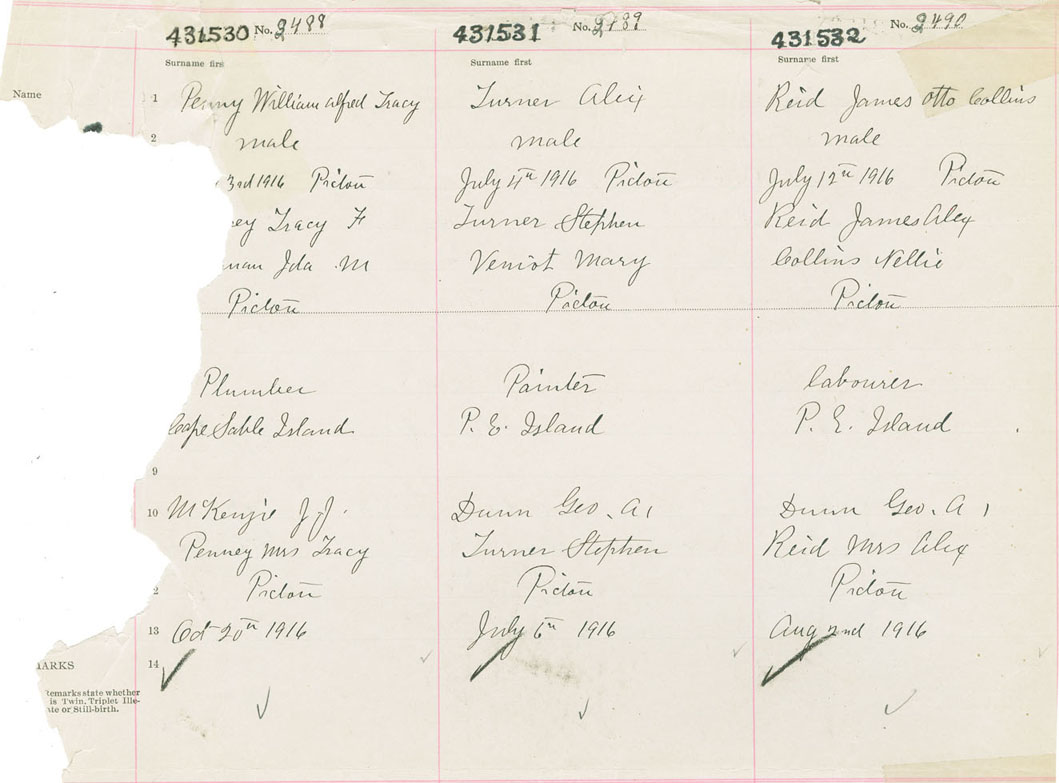 431530 No. 2488
431531 No. 2489
431532 No. 2490
Surname first
Surname first
Surname first
Name
1 Penny William alfred Tracy
Turner Alex
Reid James Otto Collins
2 male
male
male
3rd 1916 Pictou
July 4th 1916 Pictou
July 12th 1916 Pictou
ey Tracy F
Turner Stephen
Reid James Alex
man Ida M
Veniot Mary
Collins Nellie
Pictou
Pictou
Pictou
Plumber
Painter
labourer
Cape Sable Island
P. E. Island
P. E. Island
9
10 McKenzie J J.
Dunn Geo. A.
Dunn Geo. A.
Penney Mrs Tracy
Turner Stephen
Reid Mrs Alex
2 Pictou
Pictou
Pictou
13 Oct 20th 1916
July 6th 1916
Aug 2nd 1916
14
MARKS
Remarks state whether
is Twin, Triplet Ille-
te or Still-birth.